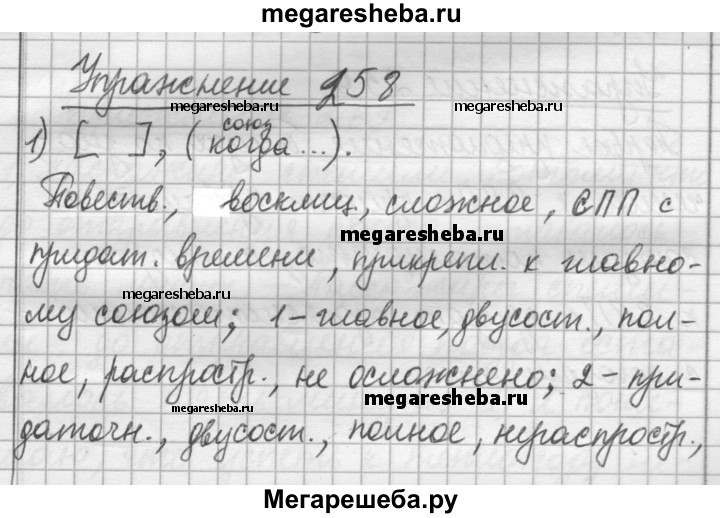 megaresheba.ru
Упражнение 258
megaresheba.ru megaresheba.ru
союз
1) [ ], (когда...).
Повеств., восклиц., сложное, СПП с
megaresheba.ru
придат. времени, прикрепл. к главно-
megaresheba.ru
му союзом; 1-главное, двусост., пол-
ное, распростр., не осложнено; 2-при-
megaresheba.ru
megaresheba.ru
даточн., двусост., полное, нераспростр.,
Мегарешеба.ру